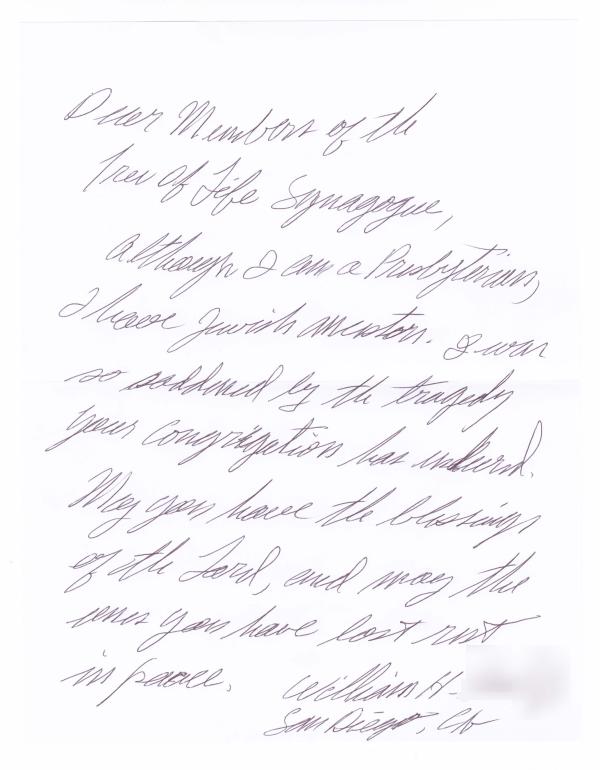 Dear Members of the
Tree of Life Synagogue,
Although I am a Presbyterian,
I have Jewish ancestors. I was
so saddened by the tragedy
your congregation has endured.
May you have the blessings
of the Lord, and may the
ones you have lost rest
in peace. William H.
San Diego, CA